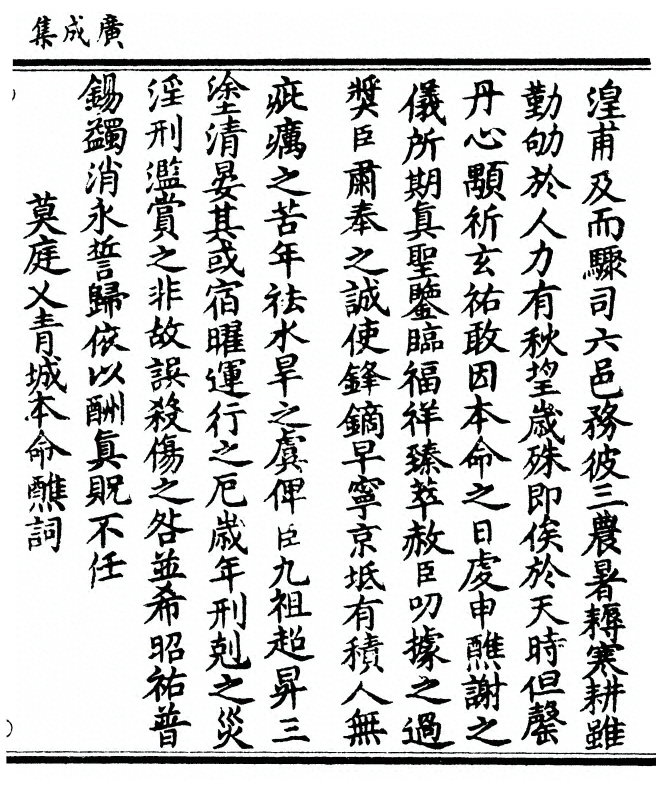 廣成集
湟甫及而驟司六邑務彼三農暑耨寒耕雖
勤劬於人力有秋望歲殊即俟於天時但罄
丹心顒祈玄祐敢因本命之日虔申醮謝之
儀所期真聖鑒臨福祥臻萃赦臣叨據之過
獎臣肅奉之誠使鋒鏑早寧京坻有積人無
疵癘之苦年祛水旱之虞俾臣九祖超昇三
塗清晏其或宿曜運行之厄歲年刑剋之災
淫刑濫賞之非故誤殺傷之咎並希昭祐普
錫蠲消永誓歸依以酬真貺不任
莫庭乂青城本命醮詞